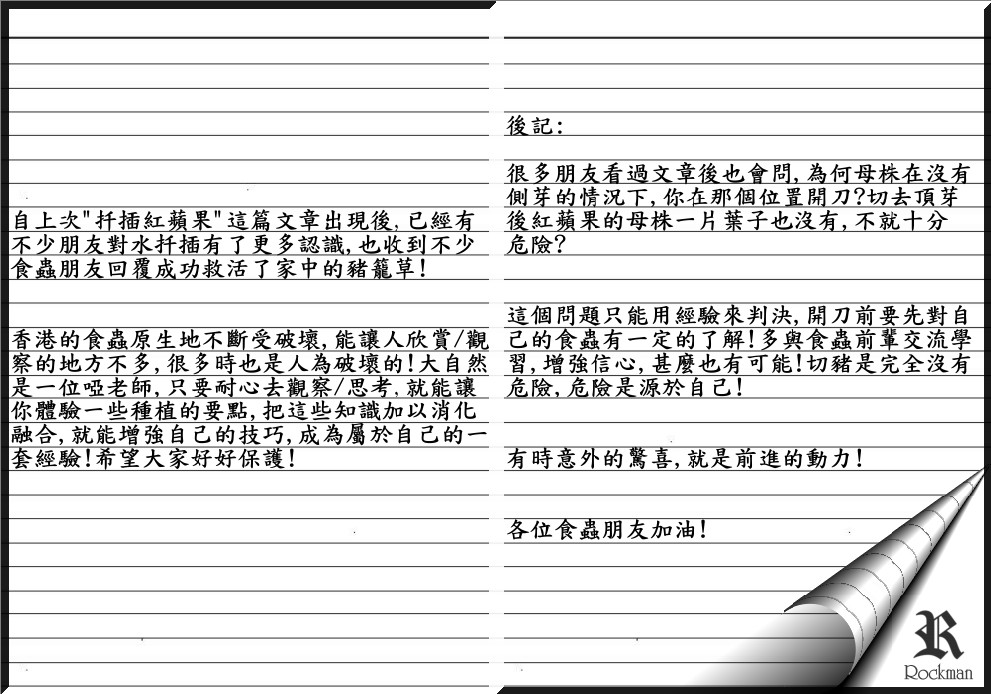 自上次"扦插紅蘋果"這篇文章出現後, 已經有
不少朋友對水扦插有了更多認識, 也收到不少
食蟲朋友回覆成功救活了家中的豬籠草!
香港的食蟲原生地不斷受破壞, 能讓人欣賞/觀
察的地方不多, 很多時也是人為破壞的!大自然
是一位啞老師, 只要耐心去觀察/思考, 就能讓
你體驗一些種植的要點, 把這些知識加以消化
融合, 就能增強自己的技巧, 成為屬於自己的一
套經驗!希望大家好好保護!
後記:
很多朋友看過文章後也會問, 為何母株在沒有
側芽的情況下, 你在那個位置開刀?切去頂芽
後紅蘋果的母株一片葉子也沒有, 不就十分
危險?
這個問題只能用經驗來判決, 開刀前要先對自
己的食蟲有一定的了解!多與食蟲前輩交流學
習, 增強信心, 甚麼也有可能!切豬是完全沒有
危險, 危險是源於自己!
有時意外的驚喜, 就是前進的動力!
各位食蟲朋友加油!
R
Rockman